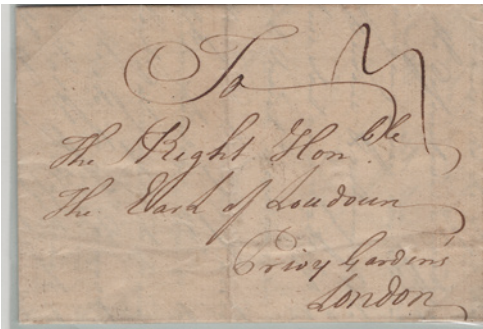 To
The Right Honble
The Earl of Loudoun
Privy Gardens
London